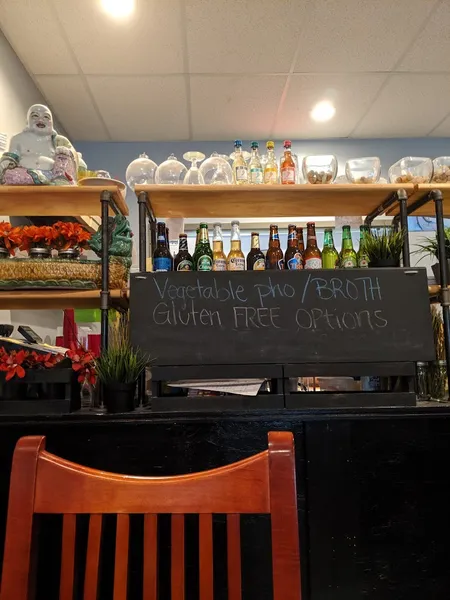 Vegetable pho / BROTH
Gluten FREE Options